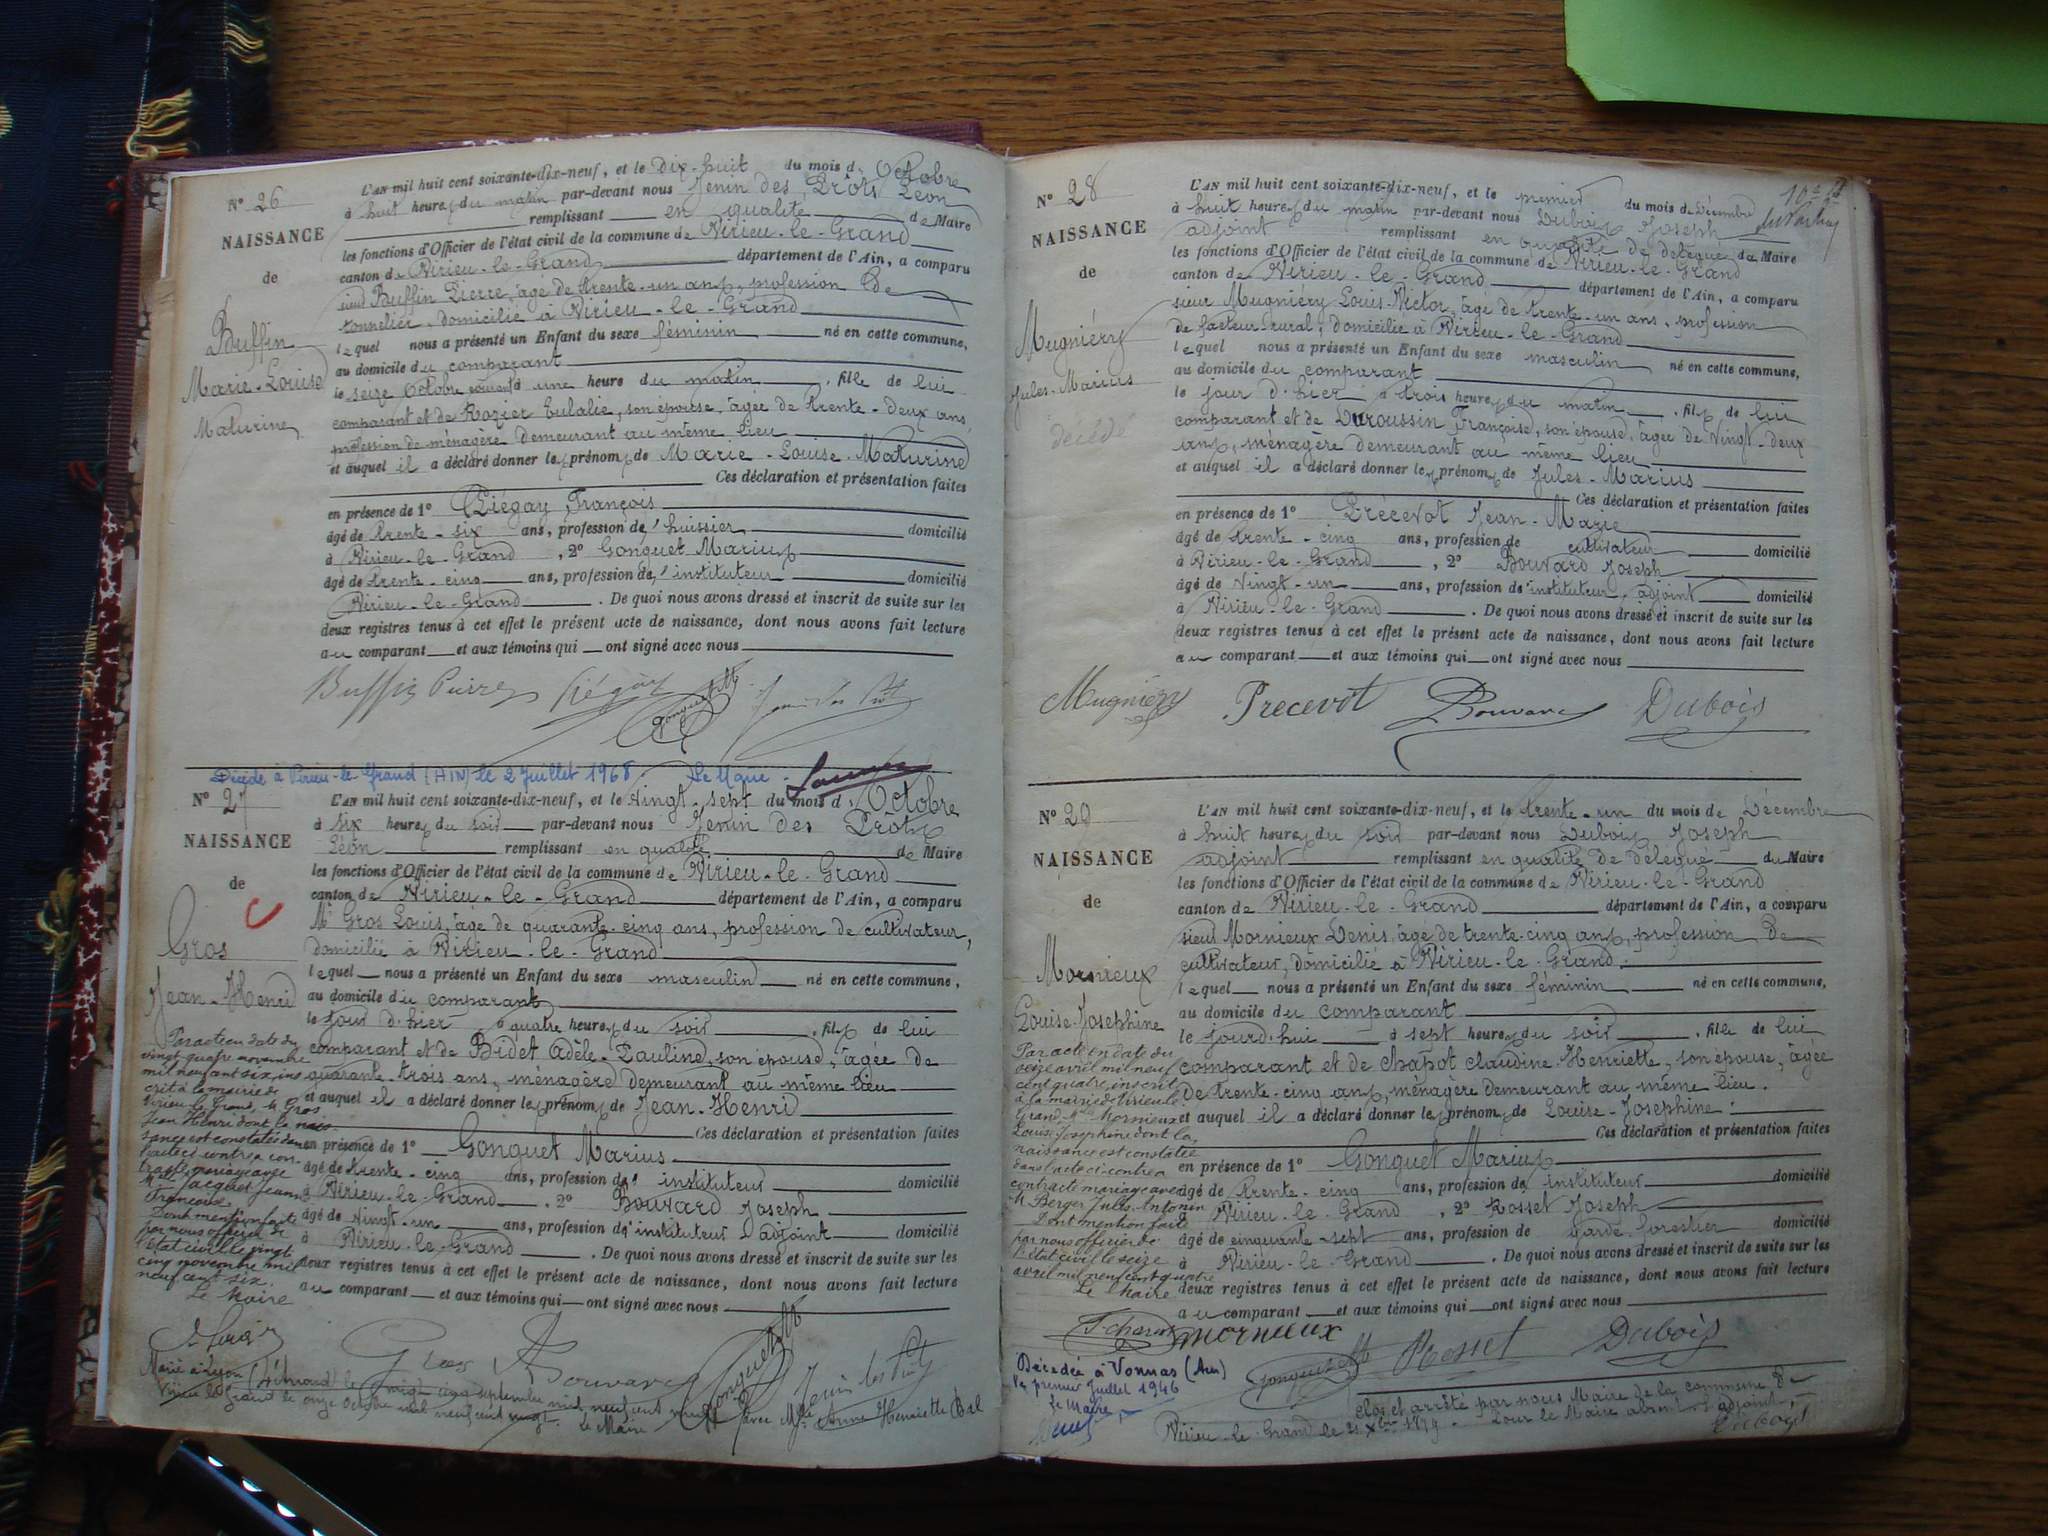 N° 26
NAISSANCE
de
Buffin
Marie-Louise
Maturine
L'AN mil huit cent soixante-dix-neuf, et le Dix-huit du mois d' Octobre
à huit heures du matin par-devant nous Jenin des Prôts Léon
remplissant en qualité de Maire
les fonctions d'Officier de l'état civil de la commune de Virieu-le-Grand
canton de Virieu-le-Grand département de l'Ain, a comparu
sieur Buffin Pierre, âgé de trente-un ans, profession de
tonnelier, domicilié à Virieu-le-Grand
lequel nous a présenté un Enfant du sexe féminin né en cette commune,
au domicile du comparant
le seize Octobre courant à une heure du matin, fille de lui
comparant et de Rozier Eulalie, son épouse, âgée de trente-deux ans,
profession de ménagère demeurant au même lieu
et auquel il a déclaré donner les prénoms de Marie-Louise-Maturine
Ces déclaration et présentation faites
en présence de 1° Piégay François
âgé de trente-six ans, profession d'huissier domicilié
à Virieu-le-Grand, 2° Gonguet Marius
âgé de trente-cinq ans, profession d'instituteur domicilié
Virieu-le-Grand. De quoi nous avons dressé et inscrit de suite sur les
deux registres tenus à cet effet le présent acte de naissance, dont nous avons fait lecture
au comparant et aux témoins qui ont signé avec nous
Buffin Pierre Piégay Gonguet M Jenin des Prôts
Décédé à Virieu-le-Grand (AIN) le 2 Juillet 1968 Le Maire
N° 27
NAISSANCE
de
Gros
Jean-Henri
Par acte en date du
vingt quatre novembre
mil neuf cent six, ins
crit à la mairie de
Virieu le Grand, M Gros
Jean Henri dont la nais
sance est constatée dans
l'acte ci contre a con
tracté mariage avec
Melle Jacquet Jeanne
Françoise.
Dont mention faite
par nous officier de
l'état civil le vingt
cinq novembre mil
neuf cent six.
Le Maire
L'AN mil huit cent soixante-dix-neuf, et le Vingt-sept du mois d' Octobre
à six heures du soir par-devant nous Jenin des Prôts
Léon remplissant en qualité de Maire
les fonctions d'Officier de l'état civil de la commune de Virieu-le-Grand
canton de Virieu-le-Grand département de l'Ain, a comparu
Mr Gros Louis, âgé de quarante-cinq ans, profession de cultivateur,
domicilié à Virieu-le-Grand
lequel nous a présenté un Enfant du sexe masculin né en cette commune,
au domicile du comparant
le jour d'hier à quatre heures du soir, fils de lui
comparant et de Bidet Adèle-Pauline, son épouse, âgée de
quarante-trois ans, ménagère demeurant au même lieu
et auquel il a déclaré donner les prénoms de Jean-Henri
Ces déclaration et présentation faites
en présence de 1° Gonguet Marius
âgé de trente-cinq ans, profession d'instituteur domicilié
à Virieu-le-Grand, 2° Bouvard Joseph
âgé de Vingt-un ans, profession d'instituteur adjoint domicilié
à Virieu-le-Grand. De quoi nous avons dressé et inscrit de suite sur les
deux registres tenus à cet effet le présent acte de naissance, dont nous avons fait lecture
au comparant et aux témoins qui ont signé avec nous
Gros Bouvard Gonguet M Jenin des Prôts
Marié à Lyon le vingt cinq septembre mil neuf cent avec Mlle Anne Henriette Bal
Virieu le Grand le onze Octobre mil neuf cent vingt. le Maire
N° 28
NAISSANCE
de
Mugniéry
Jules-Marius
décédé
L'AN mil huit cent soixante-dix-neuf, et le premier du mois de Décembre
à huit heures du matin par-devant nous Dubois Joseph
adjoint remplissant en qualité de délégué du Maire
les fonctions d'Officier de l'état civil de la commune de Virieu-le-Grand
canton de Virieu-le-Grand département de l'Ain, a comparu
sieur Mugniéry Louis-Victor, âgé de trente-un ans, profession
de facteur rural, domicilié à Virieu-le-Grand
lequel nous a présenté un Enfant du sexe masculin né en cette commune,
au domicile du comparant
le jour d'hier à trois heures du matin, fils de lui
comparant et de Duroussin Françoise, son épouse, âgée de Vingt-deux
ans, ménagère demeurant au même lieu
et auquel il a déclaré donner les prénoms de Jules-Marius
Ces déclaration et présentation faites
en présence de 1° Précevot Jean-Marie
âgé de trente-cinq ans, profession de cultivateur domicilié
à Virieu-le-Grand, 2° Bouvard Joseph
âgé de Vingt-un ans, profession d'instituteur adjoint domicilié
à Virieu-le-Grand. De quoi nous avons dressé et inscrit de suite sur les
deux registres tenus à cet effet le présent acte de naissance, dont nous avons fait lecture
au comparant et aux témoins qui ont signé avec nous
Mugniéry Precevot Bouvard Dubois
N° 29
NAISSANCE
de
Mornieux
Louise-Josephine
Par acte en date du
seize avril mil neuf
cent quatre, inscrit
à la mairie de Virieu le
Grand, Melle Mornieux
Louise Josephine dont la
naissance est constatée
dans l'acte ci contre a
contracté mariage avec
M. Berger Jules Antonin
Dont mention faite
par nous officier de
l'état civil le seize
avril mil neuf cent quatre
Le Maire
Décédée à Vonnas (Ain)
le premier Juillet 1946
Le Maire
L'AN mil huit cent soixante-dix-neuf, et le trente-un du mois de Décembre
à huit heures du soir par-devant nous Dubois Joseph
adjoint remplissant en qualité de délégué du Maire
les fonctions d'Officier de l'état civil de la commune de Virieu-le-Grand
canton de Virieu-le-Grand département de l'Ain, a comparu
sieur Mornieux Denis, âgé de trente-cinq ans, profession de
cultivateur, domicilié à Virieu-le-Grand.
lequel nous a présenté un Enfant du sexe féminin né en cette commune,
au domicile du comparant
le jourd'hui à sept heures du soir, fille de lui
comparant et de Chapot Claudine-Henriette, son épouse, âgée
de trente-cinq ans, ménagère demeurant au même lieu.
et auquel il a déclaré donner les prénoms de Louise-Josephine.
Ces déclaration et présentation faites
en présence de 1° Gonguet Marius
âgé de trente-cinq ans, profession d'instituteur domicilié
à Virieu-le-Grand, 2° Rosset Joseph
âgé de cinquante-sept ans, profession de garde-forestier domicilié
à Virieu-le-Grand. De quoi nous avons dressé et inscrit de suite sur les
deux registres tenus à cet effet le présent acte de naissance, dont nous avons fait lecture
au comparant et aux témoins qui ont signé avec nous
mornieux Gonguet M Rosset Dubois
Clos et arrêté par nous Maire de la commune de
Virieu-le-Grand le 31 Xbre 1879. Pour le Maire absent l'adjoint,
Dubois